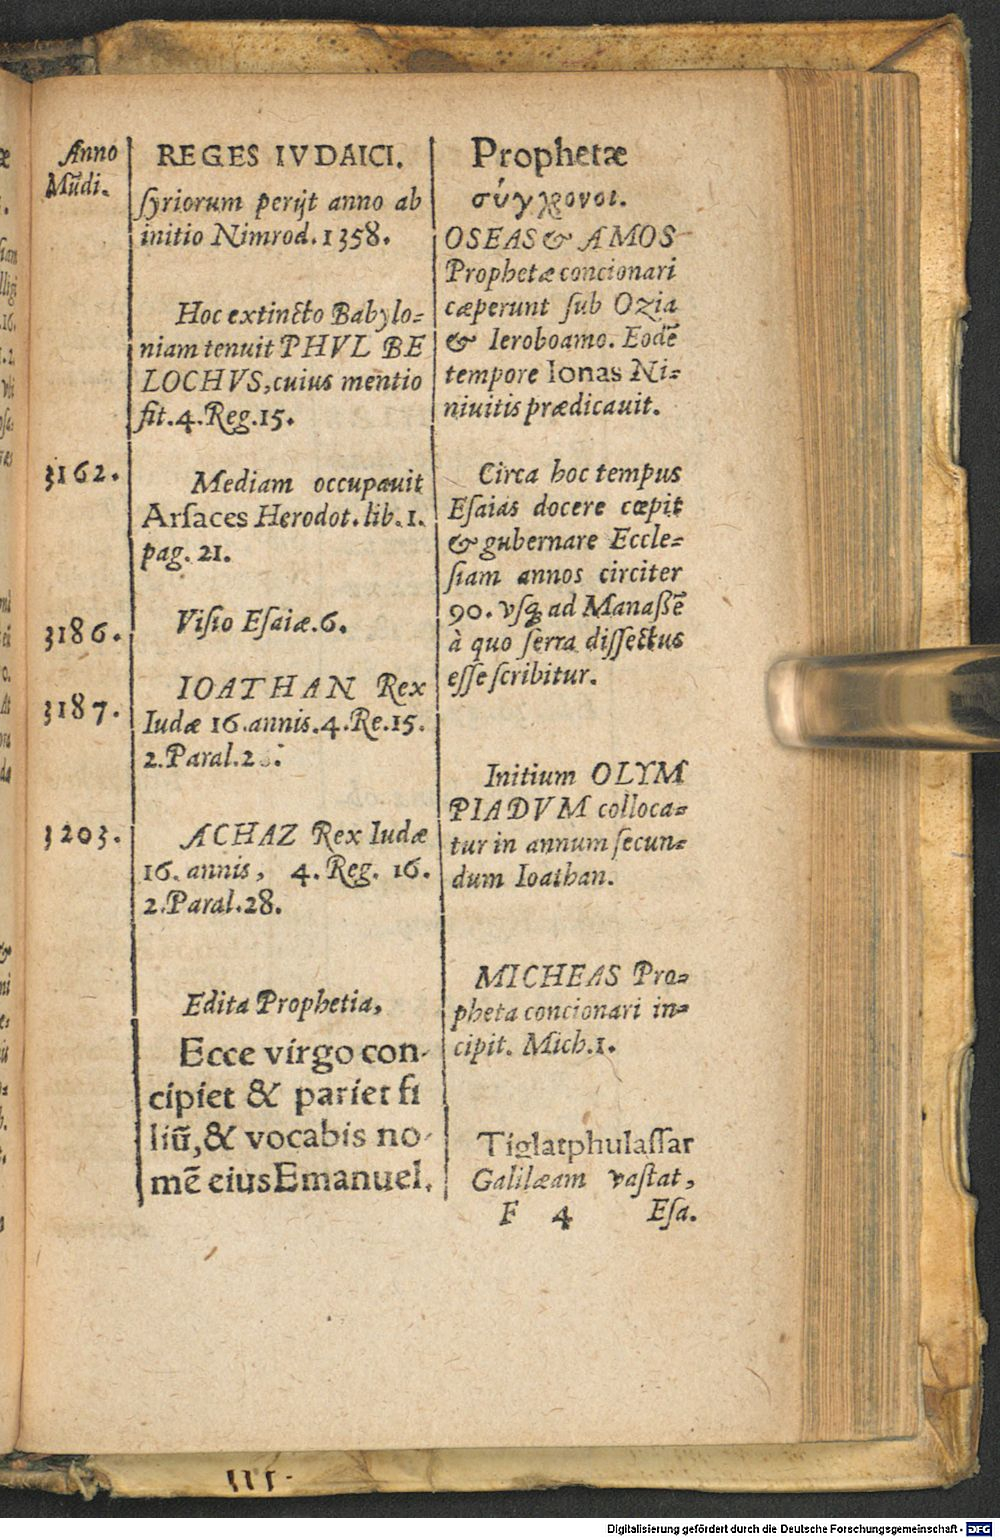 Anno
Mūdi.
REGES IVDAICI.
ſyriorum perijt anno ab
initio Nimrod. 1358.
Hoc extincto Babylo=
niam tenuit PHVL BE
LOCHVS, cuius mentio
fit. 4. Reg. 15.
3162.
Mediam occupauit
Arſaces Herodot. lib. 1.
pag. 21.
3186.
Viſio Eſaiæ. 6.
3187.
IOATHAN Rex
Iudæ 16. annis. 4. Re. 15.
2. Paral.
3203.
ACHAZ Rex Iudæ
16. annis, 4. Reg. 16.
2. Paral. 28.
Edita Prophetia,
Ecce virgo con-
cipiet & pariet fi
liū, & vocabis no-
mē eius Emanuel.
Prophetæ
σύγχρονοι.
OSEAS & AMOS
Prophetæ concionari
cæperunt ſub Ozia
& Ieroboamo. Eodē
tempore Ionas Ni=
niuitis prædicauit.
Circa hoc tempus
Eſaias docere cœpit
& gubernare Eccle=
ſiam annos circiter
90. vſq; ad Manaßē
à quo ſerra diſſectus
eſſe ſcribitur.
Initium OLYM
PIADVM colloca=
tur in annum ſecun=
dum Ioathan.
MICHEAS Pro=
pheta concionari in=
cipit. Mich. 1.
Tiglatphulaſſar
Galilæam vaſtat,
F 4 Eſa.
Digitalisierung gefördert durch die Deutsche Forschungsgemeinschaft - DFG